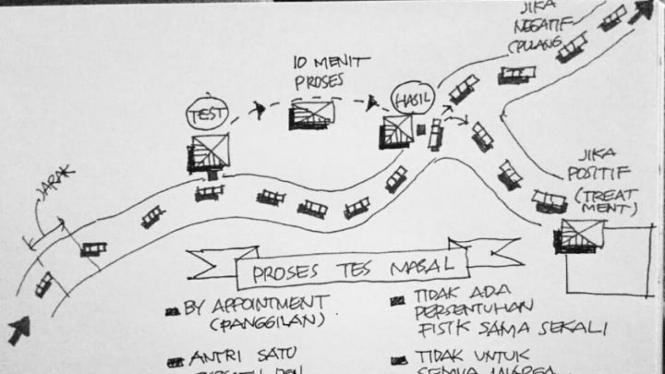 JIKA
NEGATIF
(PULANG)
10 MENIT
PROSES
TEST
HASIL
JARAK
JIKA
POSITIF
(TREAT
MENT)
PROSES TES MASAL
BY APPOINTMENT
(PANGGILAN)
TIDAK ADA
PERSENTUHAN
FISIK SAMA SEKALI
ANTRI SATU
TIDAK UNTUK
SEMUA WARGA